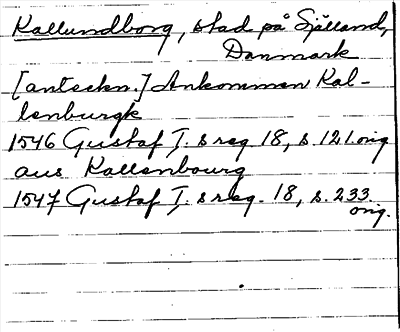 Kallundborg, stad på Sjålland,
Danmark
[anteckn.] Ankommen Kal-
lenburgk
1546 Gustaf I. s reg. 18, s. 121. orig
aus Kallenbourg
1547 Gustaf I. s reg. 18, s. 233.
orig.